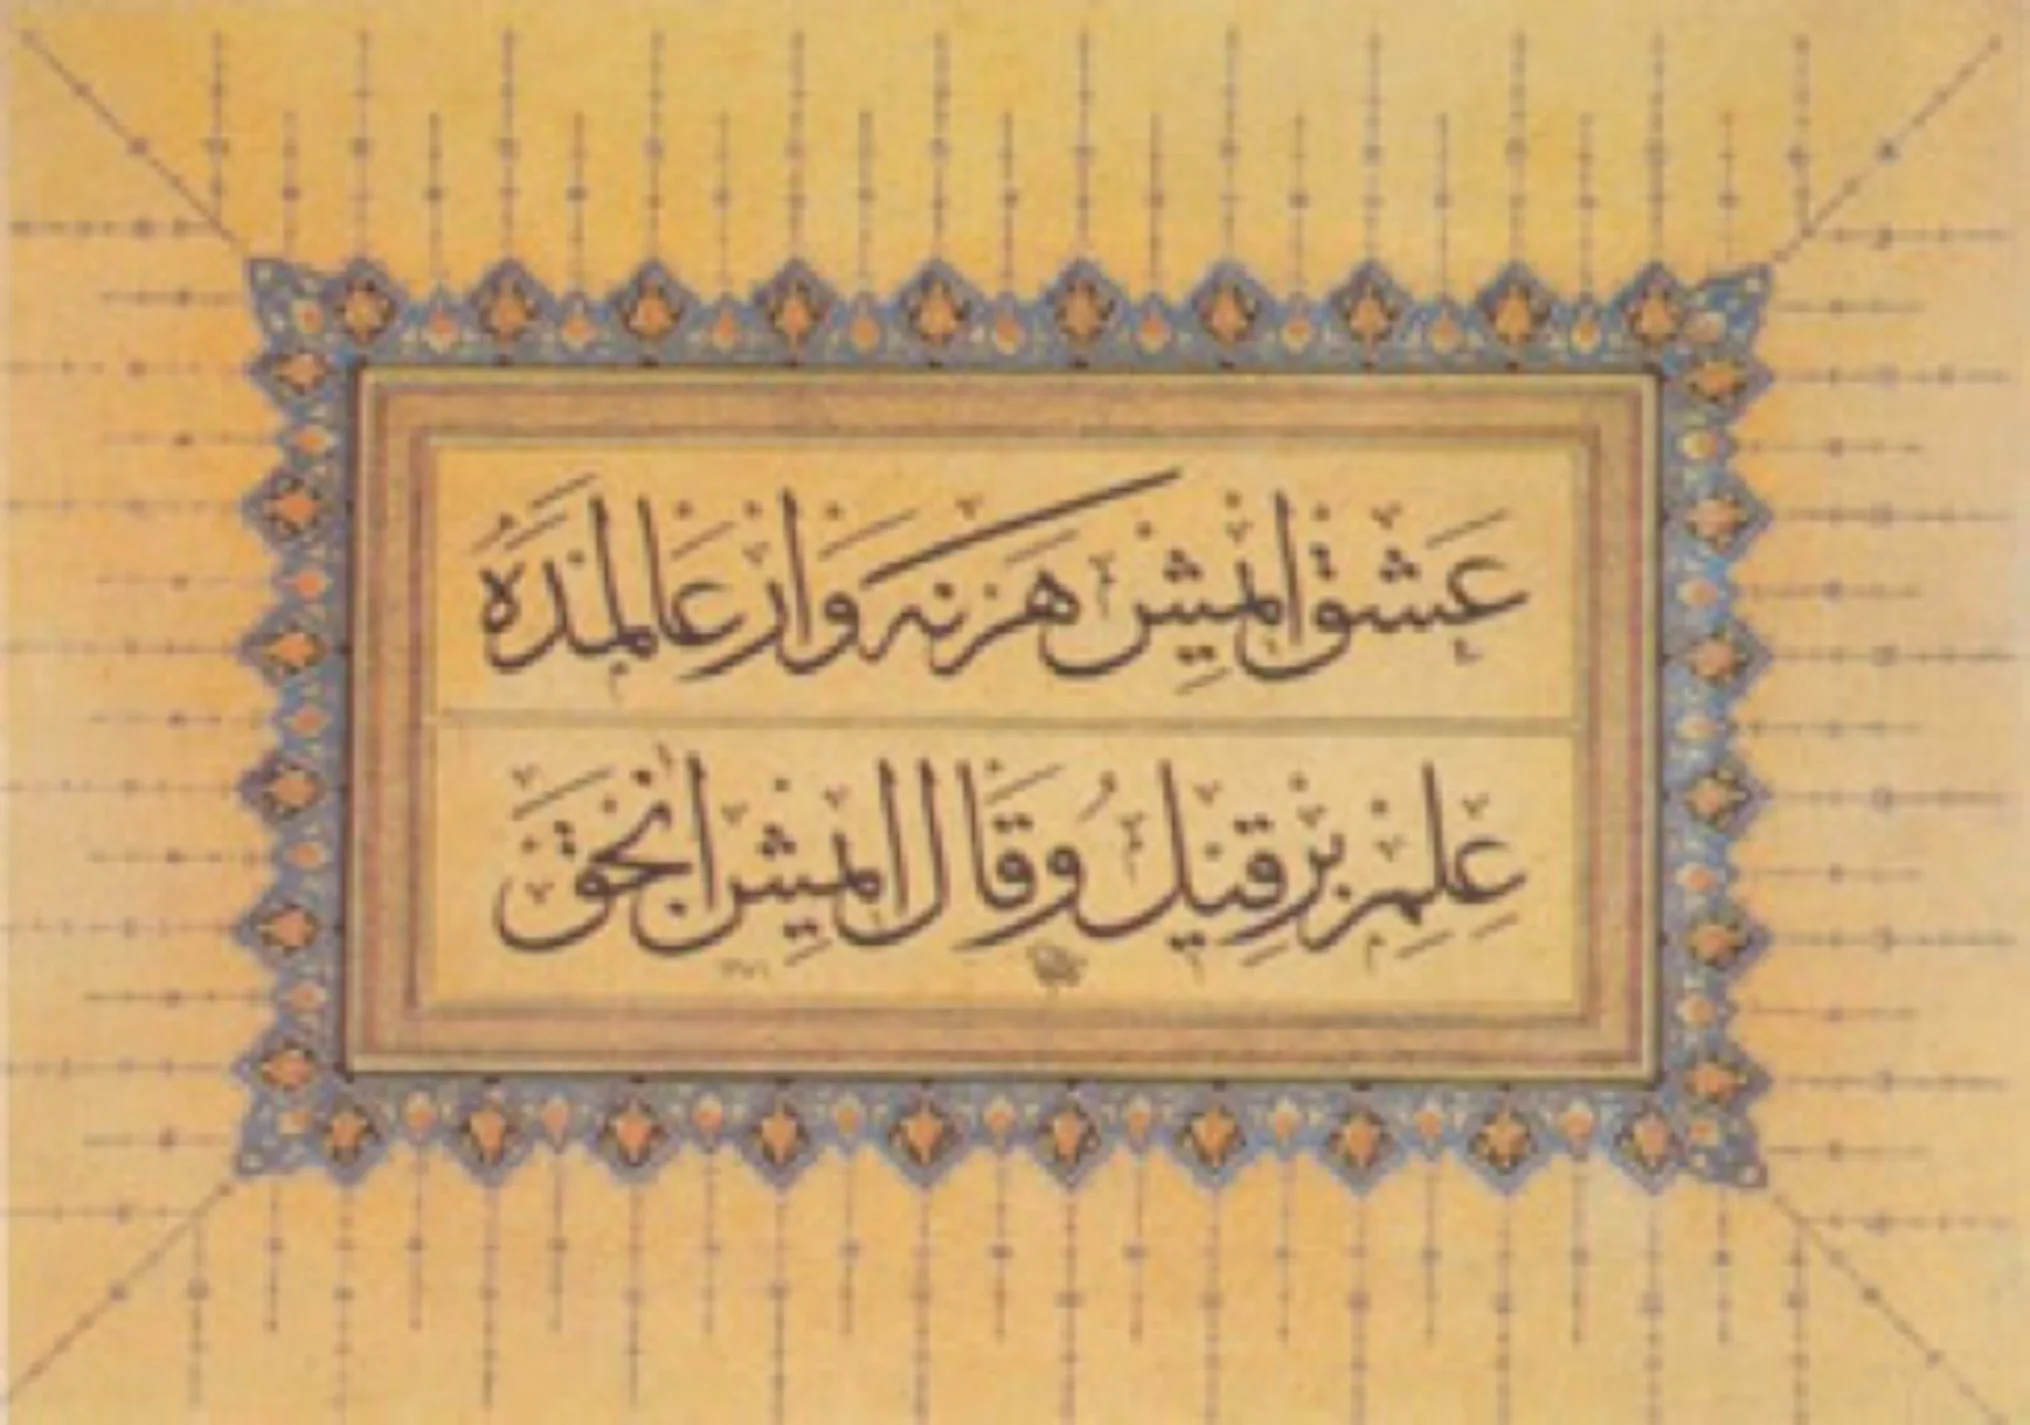 عشق ايمش هر نه وار عالمده
علم بر قيل و قال ايمش انجق